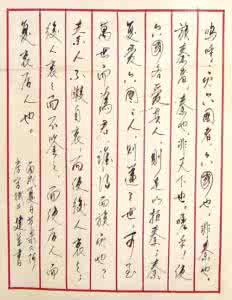 嗚呼！灭六國者六國也，非秦也。
族秦者，秦也，非天下也。嗟乎！使
六國各愛其人，則足以拒秦；秦
复爱六國之人，则遞三世可至
萬世而為君，誰得而族滅也？
秦人不暇自哀而後人哀之；
後人哀之而不鑒之，而使後人而
复哀后人也。